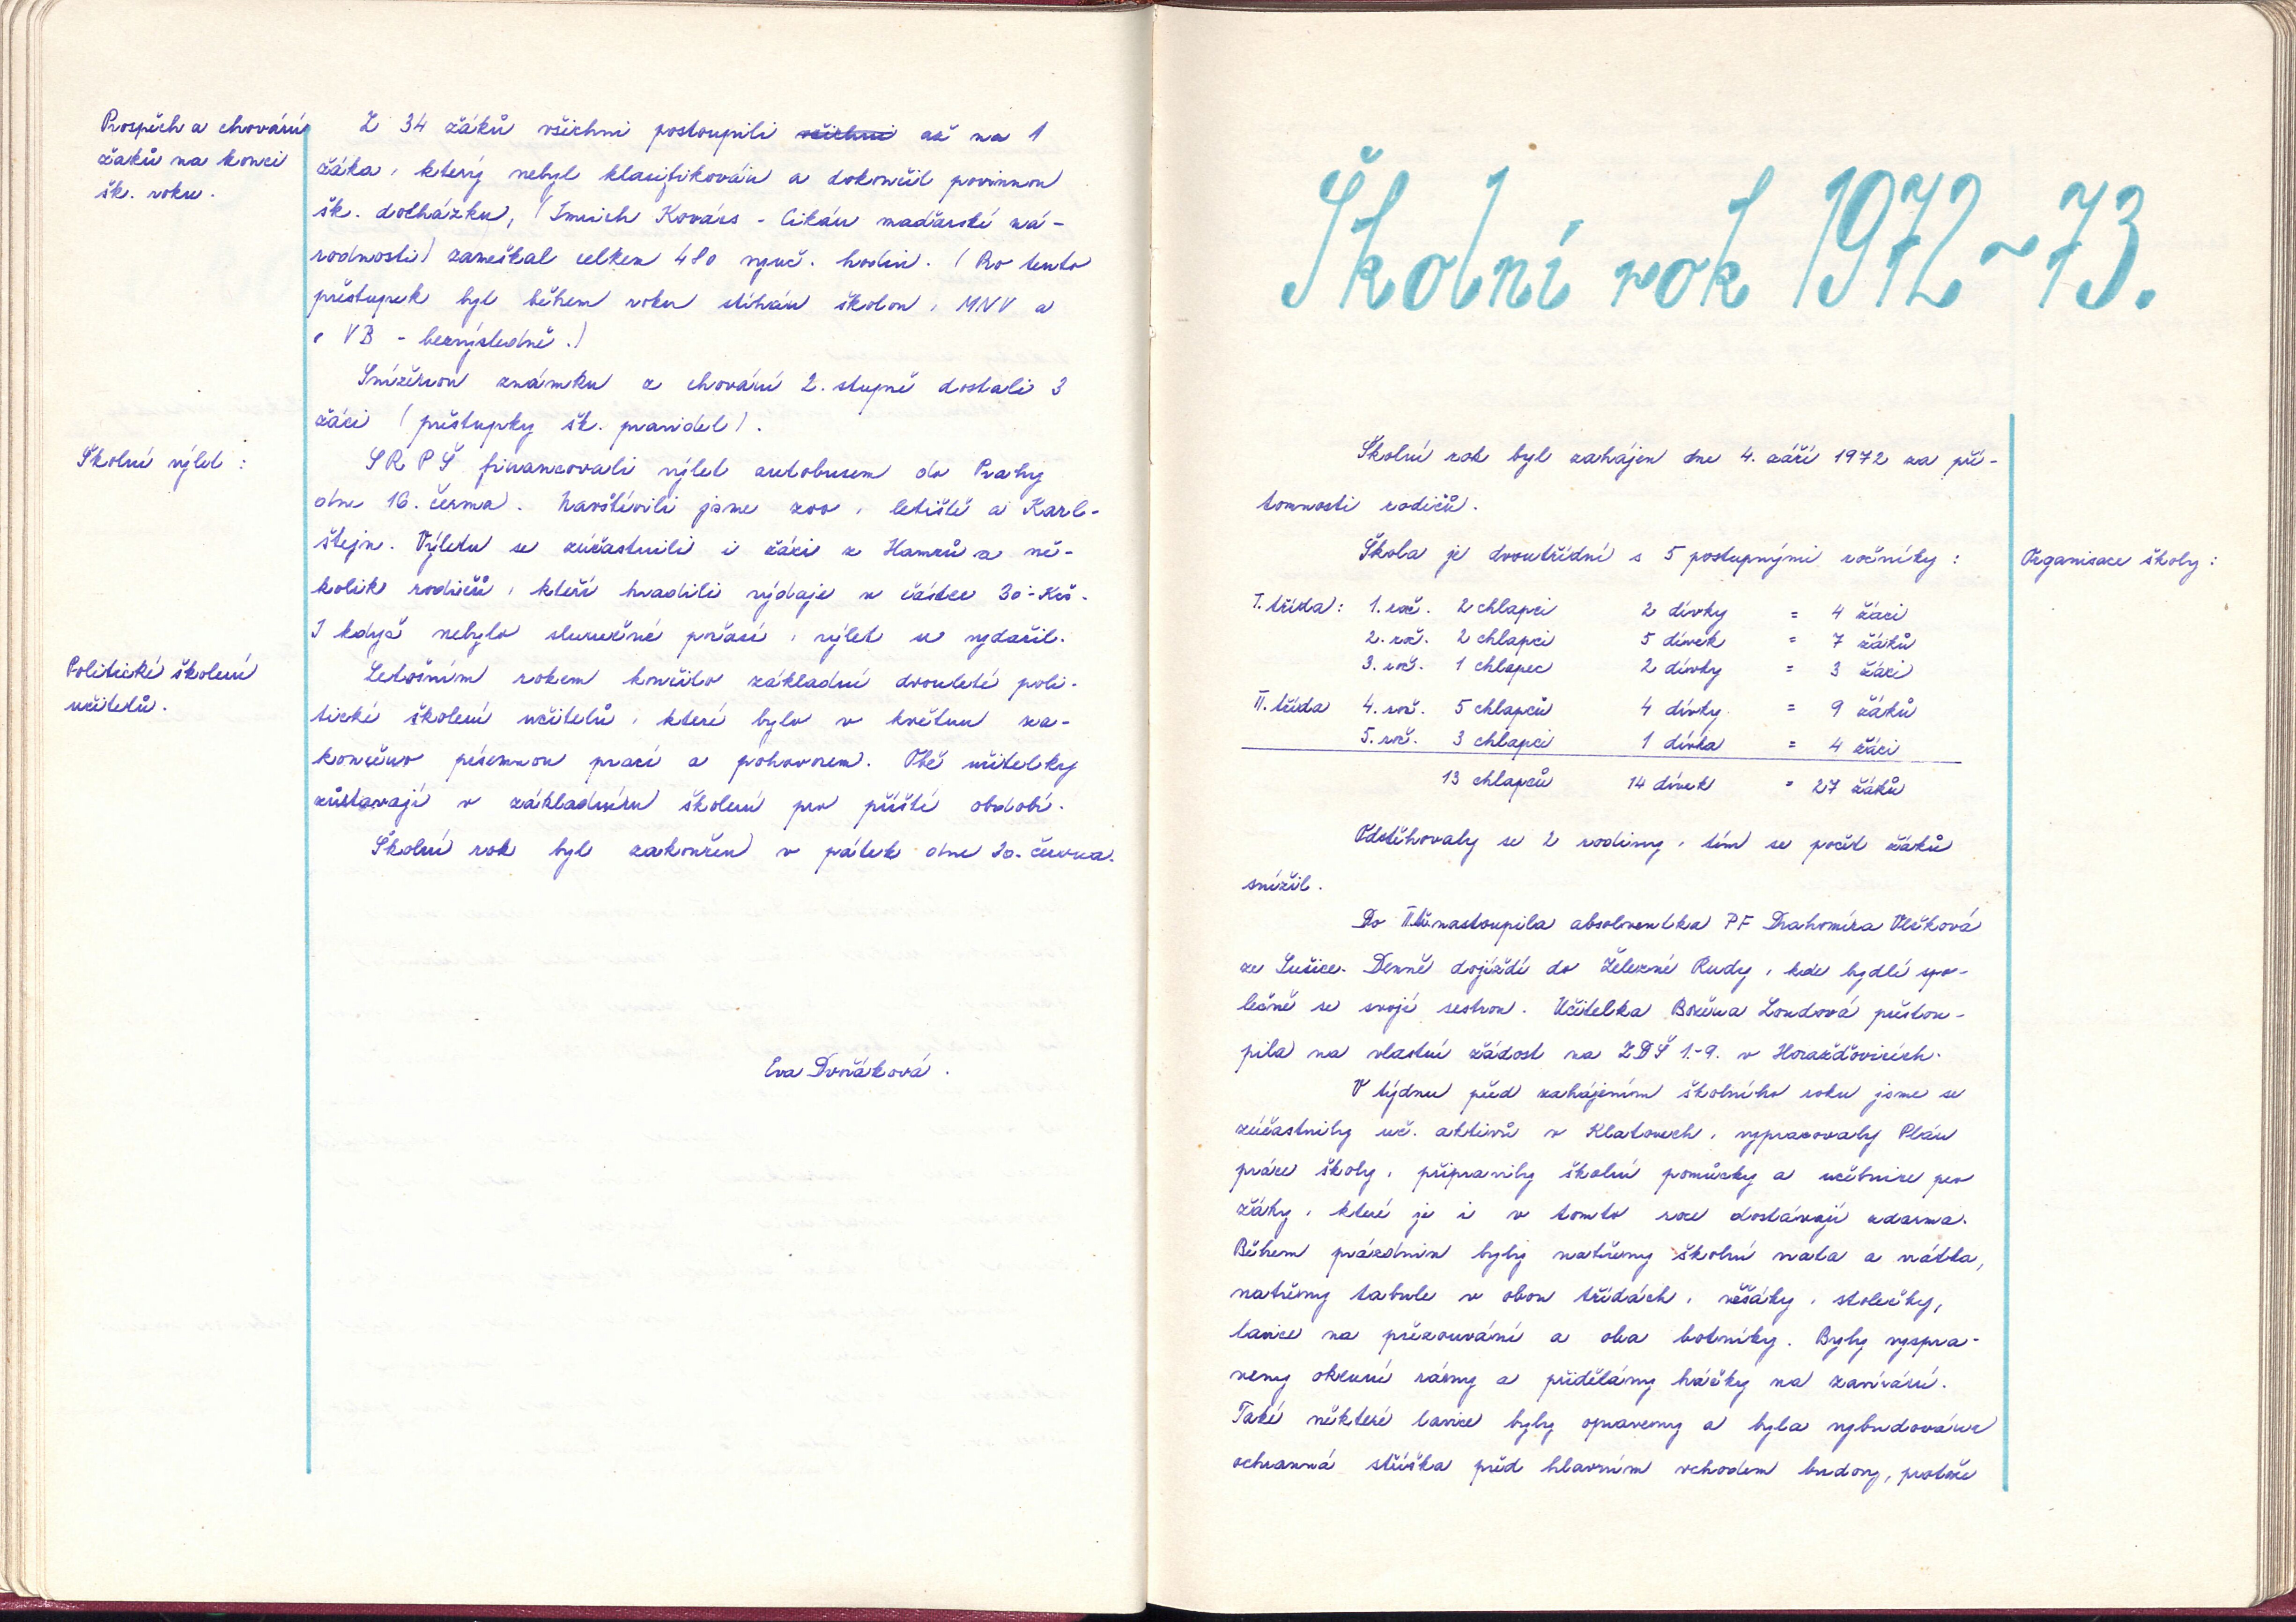 Prospěch a chování
žáků na konci
šk. roku.
Z 34 žáků všichni postoupili všichni až na 1
žáka, který nebyl klasifikován a dokončil povinnou
šk. docházku, (Imrich Kovács - Cikán maďarské ná-
rodnosti) zameškal celkem 480 vyuč. hodin. (Pro tento
přestupek byl během roku stíhán školou, MNV a
i VB - bezvýsledně.)
Sníženou známku z chování 2. stupně dostali 3
žáci (přestupky šk. pravidel).
Školní výlet:
SRPŠ financovali výlet autobusem do Prahy
dne 16. června. Navštívili jsme zoo, letiště a Karl-
štejn. Výletu se zúčastnili i žáci z Hamrů a ně-
kolik rodičů, kteří hradili výdaje v částce 30,- Kčs.
I když nebylo slunečné počasí, výlet se vydařil.
Politické školení
učitelů.
Letošním rokem končilo základní dvouleté poli-
tické školení učitelů, které bylo v květnu za-
končeno písemnou prací a pohovorem. Obě učitelky
zůstavají v základním školení pro příští období.
Školní rok byl zakončen v pátek dne 30. června.
Eva Dvořáková.
Školní rok 1972~73.
Školní rok byl zahájen dne 4. září 1972 za pří-
tomnosti rodičů.
Organisace školy:
Škola je dvoutřídní s 5 postupnými ročníky:
I. třída: 1. roč. 2 chlapci 2 dívky = 4 žáci
2. roč. 2 chlapci 5 dívek = 7 žáků
3. roč. 1 chlapec 2 dívky = 3 žáci
II. třída 4. roč. 5 chlapců 4 dívky = 9 žáků
5. roč. 3 chlapci 1 dívka = 4 žáci
13 chlapců 14 dívek = 27 žáků
Odstěhovaly se 2 rodiny, tím se počet žáků
snížil.
Do II.tř. nastoupila absolventka PF Drahomíra Vlčková
ze Sušice. Denně dojíždí do Železné Rudy, kde bydlí spo-
lečně se svojí sestrou. Učitelka Božena Londová přestou-
pila na vlastní žádost na ZDŠ 1.-9. v Horažďovicích.
V týdnu před zahájením školního roku jsme se
zúčastnily uč. aktivů v Klatovech, vypracovaly Plán
práce školy, připravily školní pomůcky a učebnice pro
žáky, které je i v tomto roce dostávají zdarma.
Během prázdnin byly natřeny školní vrata a vrátka,
natřeny tabule v obou třídách, věšáky, stolečky,
lavice na přezouvání a oba botníky. Byly vyspra-
veny okenní rámy a přidělány háčky na zavírání.
Také některé lavice byly opraveny a byla vybudována
ochranná stříška před hlavním vchodem budovy, protože